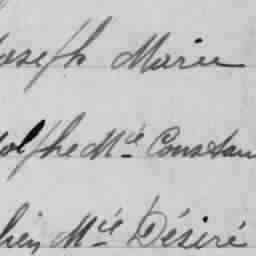 oseph Marie
olphe Mie Constan
hien Mie Désiré